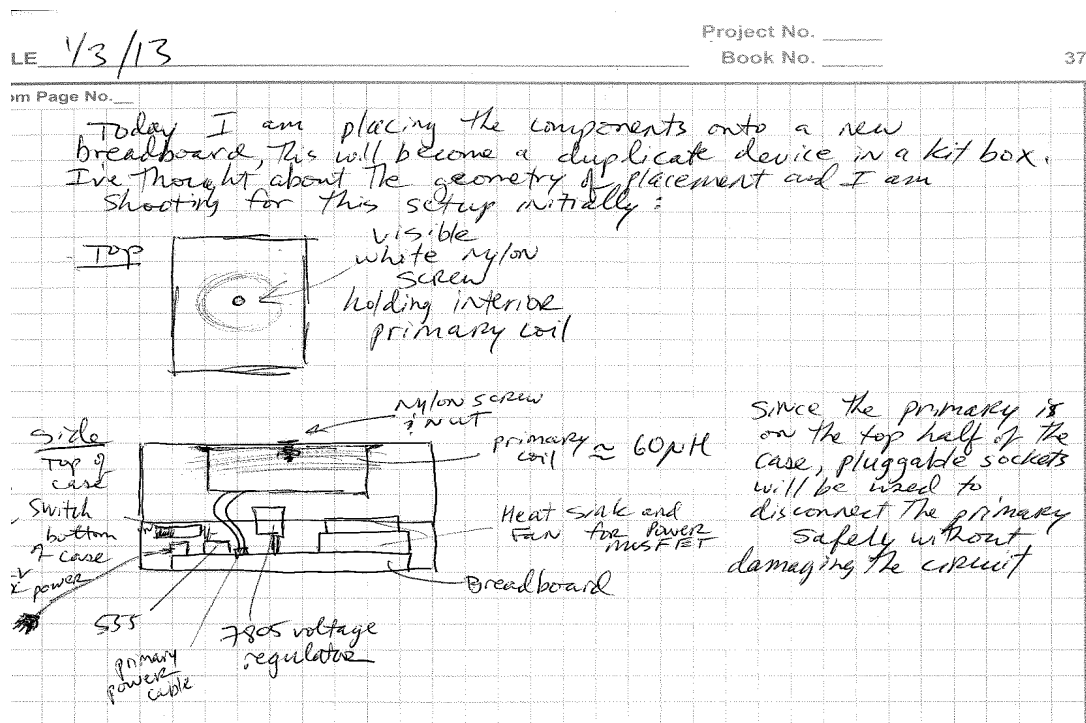 Project No.
LE 1/3/13
Book No.
37
om Page No.
Today I am placing the components onto a new
breadboard, This will become a duplicate device in a kit box.
I've thought about the geometry of placement and I am
Shooting for this setup initially:
Top
visible
white nylon
screw
holding interior
primary coil
Nylon screw
& Nut
side
Top of
case
primary
coil ≈ 60μH
Switch
bottom
of case
power
Heat sink and
Fan for Power
MOSFET
Breadboard
555
7805 voltage
regulator
primary
power
cable
Since the primary is
on the top half of the
case, pluggable sockets
will be used to
disconnect the primary
Safely without
damaging the circuit